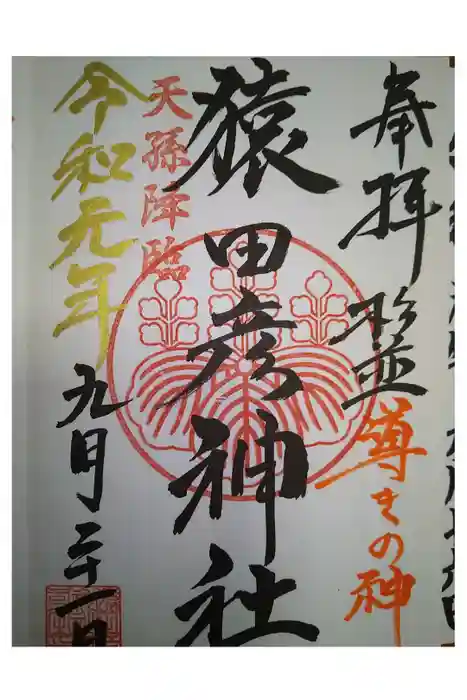 奉拝
導きの神
猿田彦神社
天孫降臨
令和元年
九月二十一日